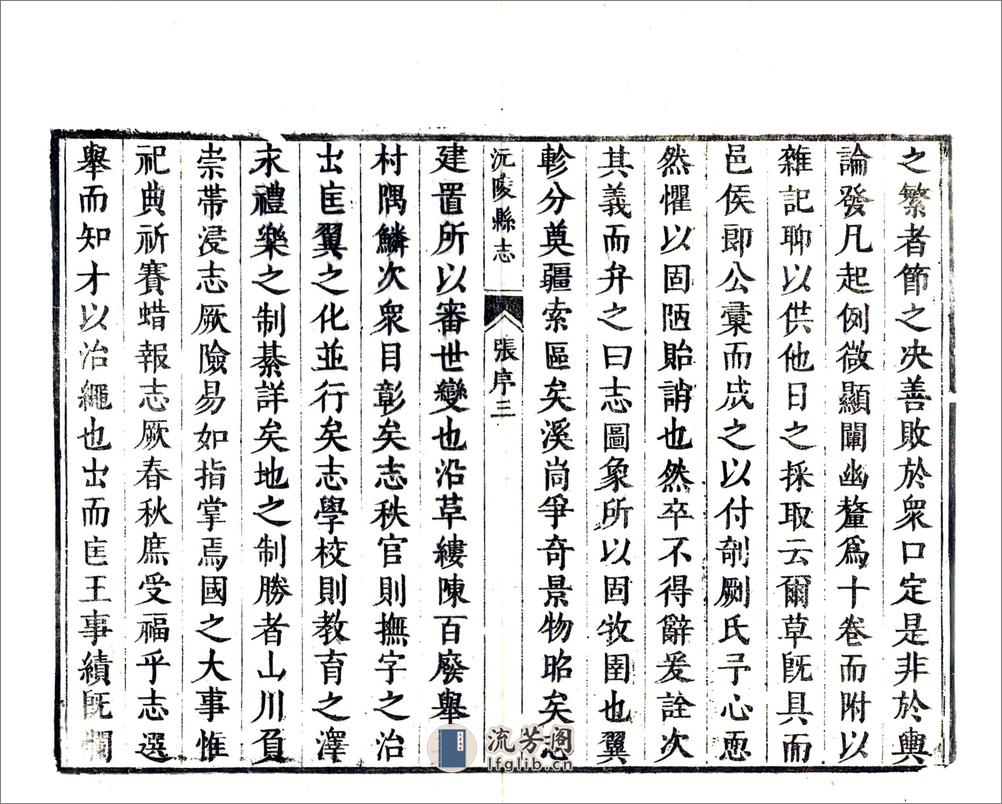 之繁者節之决善敗於衆口定是非於輿
論發凡起例微顯闡幽釐爲十卷而附以
雜記聊以供他日之採取云爾草旣具而
邑侯郎公彙而成之以付剞劂氏予心恧
然懼以固陋貽誚也然卒不得辭爰詮次
其義而弁之曰志圖象所以固牧圉也翼
軫分奠疆索區矣溪尚爭奇景物昭矣志
沅陵縣志
張序三
建置所以審世變也沿草縷陳百廢舉
村隅鱗次衆目彰矣志秩官則撫字之治
出匡翼之化並行矣志學校則教育之澤
求禮樂之制綦詳矣地之制勝者山川負
崇帶浸志厥險易如指掌焉國之大事惟
祀典祈賽蜡報志厥春秋庶受福乎志選
舉而知才以治繩也出而匡王事績旣爛
流芳阁
lfglib.cn